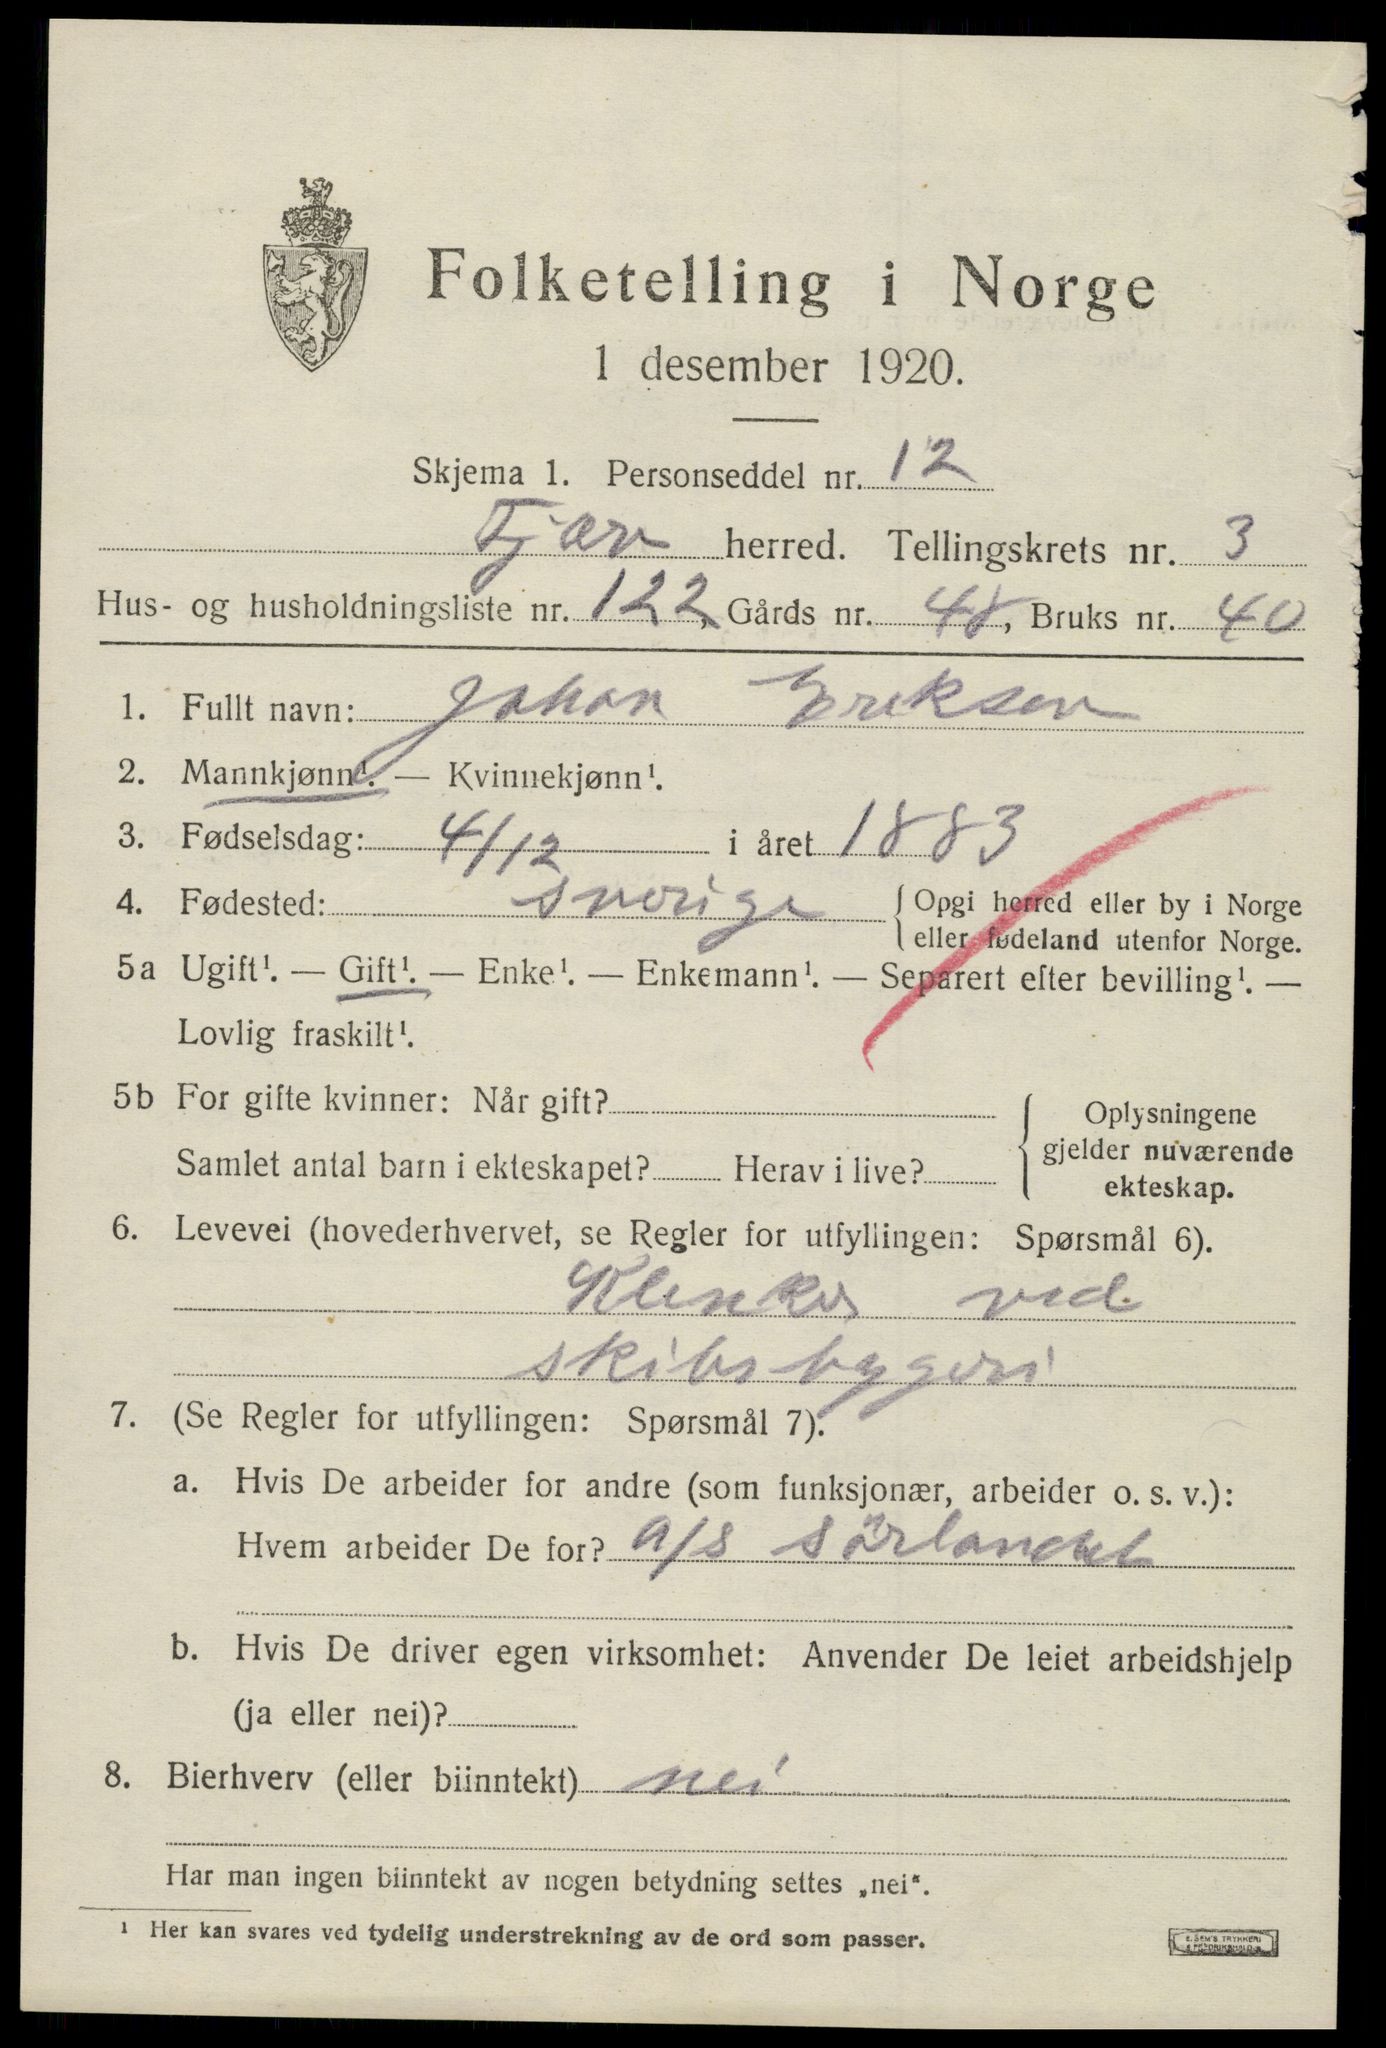 Folketelling i Norge
1 desember 1920.
Skjema 1. Personseddel nr. 12
Fjære herred. Tellingskrets nr. 3
Hus- og husholdningsliste nr. 122, Gårds nr. 48, Bruks nr. 40
1. Fullt navn: Johan Eriksen
2. Mannkjønn¹. — Kvinnekjønn¹.
3. Fødselsdag: 4/12 i året 1883
4. Fødested: Sverige { Opgi herred eller by i Norge
eller fødeland utenfor Norge.
5a Ugift¹. — Gift¹. — Enke¹. — Enkemann¹. — Separert efter bevilling¹. —
Lovlig fraskilt¹.
5b For gifte kvinner: Når gift? { Oplysningene
gjelder nuværende
Samlet antal barn i ekteskapet? Herav i live?
ekteskap.
6. Levevei (hovederhvervet, se Regler for utfyllingen: Spørsmål 6).
Klinker ved
skibsbyggeri
7. (Se Regler for utfyllingen: Spørsmål 7).
a. Hvis De arbeider for andre (som funksjonær, arbeider o. s. v.):
Hvem arbeider De for? A/S Sörlandet
b. Hvis De driver egen virksomhet: Anvender De leiet arbeidshjelp
(ja eller nei)?
8. Bierhverv (eller biinntekt) nei
Har man ingen biinntekt av nogen betydning settes „nei“.
¹ Her kan svares ved tydelig understrekning av de ord som passer.
E. SEM'S TRYKKERI
FREDRIKSHALD